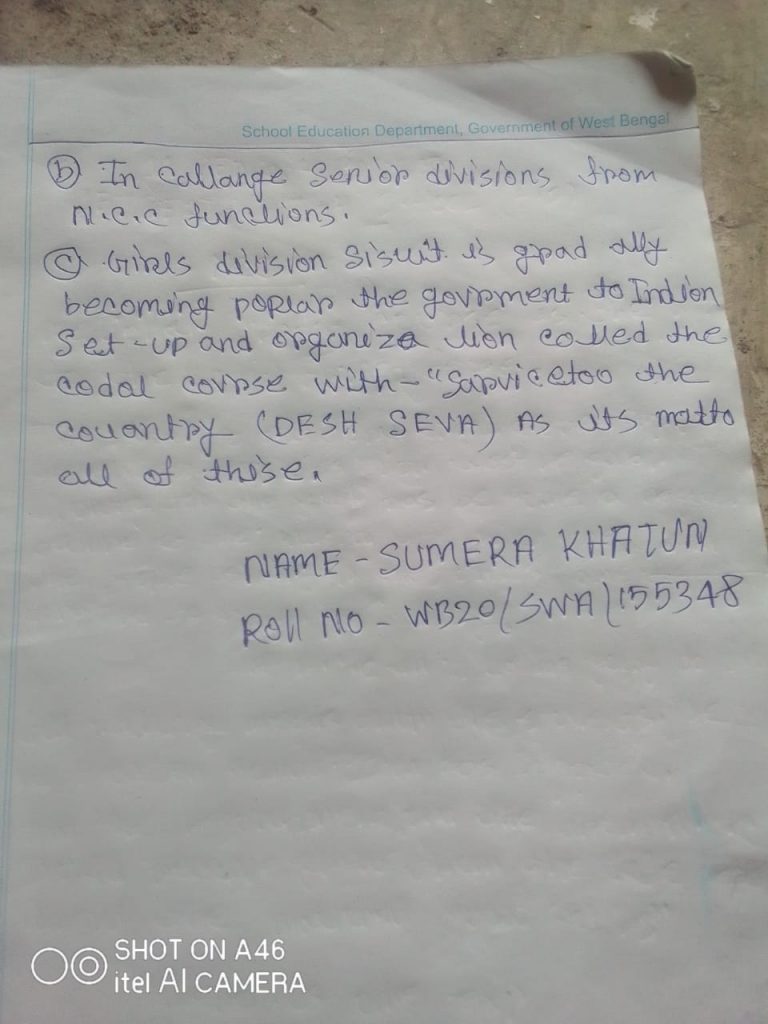 School Education Department, Government of West Bengal
(b) In Callange Senior divisions from
N.C.C functions.
(c) Girls division Sisuit is grad ally
becoming poplar the govrment to Indion
Set-up and organiza lion called the
codal covrse with-"Sarvicetoo the
couantry (DESH SEVA) As its matto
all of thise.
NAME - SUMERA KHATUN
Roll No - WB20/SWA/155348
SHOT ON A46
itel AI CAMERA